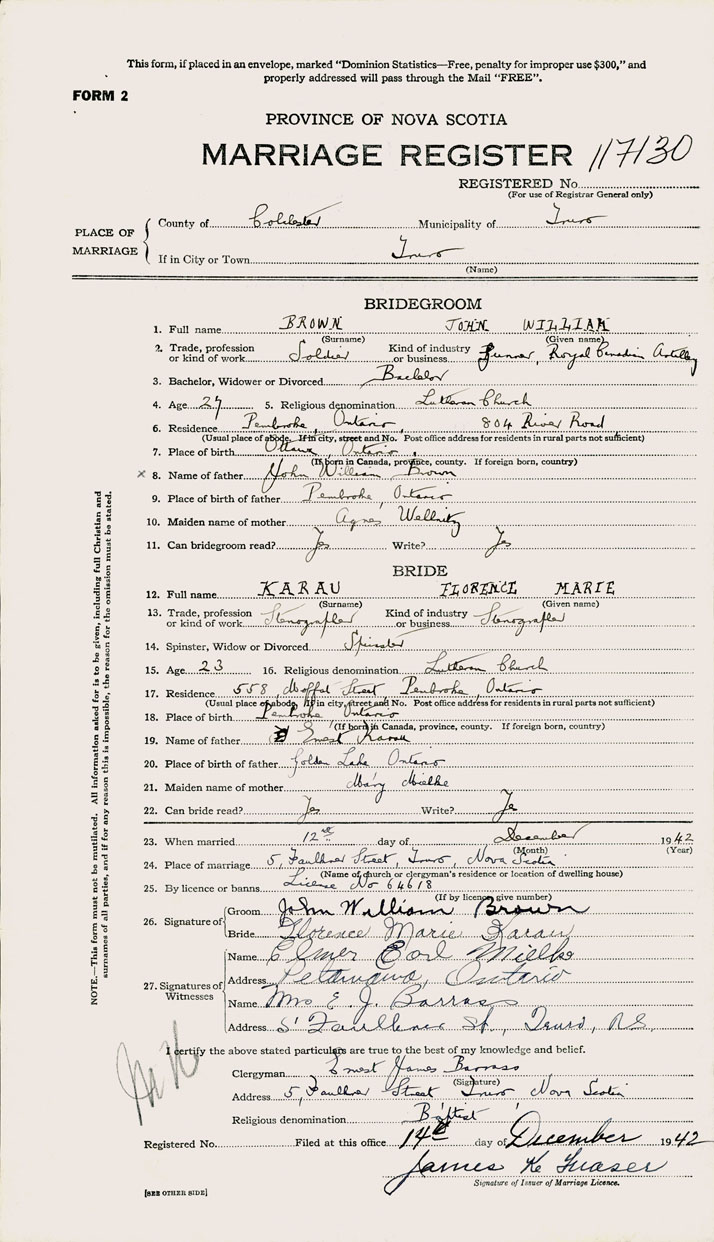 This form, if placed in an envelope, marked "Dominion Statistics—Free, penalty for improper use $300," and
properly addressed will pass through the Mail "FREE".
FORM 2
PROVINCE OF NOVA SCOTIA
MARRIAGE REGISTER 117130
REGISTERED No.
(For use of Registrar General only)
PLACE OF MARRIAGE
County of Colchester Municipality of Truro
If in City or Town Truro
(Name)
BRIDEGROOM
1. Full name BROWN JOHN WILLIAM
(Surname) (Given name)
2. Trade, profession or kind of work Soldier Kind of industry or business Gunner, Royal Canadian Artillery
3. Bachelor, Widower or Divorced Bachelor
4. Age 27 5. Religious denomination Lutheran Church
6. Residence Pembroke, Ontario, 804 River Road
(Usual place of abode. If in city, street and No. Post office address for residents in rural parts not sufficient)
7. Place of birth Ottawa, Ontario,
(If born in Canada, province, county. If foreign born, country)
x 8. Name of father John William Brown
9. Place of birth of father Pembroke, Ontario
10. Maiden name of mother Agnes
11. Can bridegroom read? Yes Write? Yes
BRIDE
12. Full name KARAU FLORENCE MARIE
(Surname) (Given name)
13. Trade, profession or kind of work Stenografer Kind of industry or business Stenografer
14. Spinster, Widow or Divorced Spinster
15. Age 23 16. Religious denomination Lutheran Church
17. Residence 558, Moffat Street Pembroke, Ontario
(Usual place of abode. If in city, street and No. Post office address for residents in rural parts not sufficient)
18. Place of birth Pembroke Ontario
(If born in Canada, province, county. If foreign born, country)
19. Name of father Ernest Karau
20. Place of birth of father Golden Lake Ontario
21. Maiden name of mother Mary Mielke
22. Can bride read? Yes Write? Yes
23. When married 12th day of December 1942
(Month) (Year)
24. Place of marriage 5, Faulkner Street, Truro, Nova Scotia
(Name of church or clergyman's residence or location of dwelling house)
25. By licence or banns License No 64618
(If by licence give number)
26. Signature of
Groom John William Brown
Bride Florence Marie Karau
27. Signatures of Witnesses
Name Elmer Earl Mielke
Address Petawawa, Ontario
Name Mrs E. J. Barrass
Address 5 Faulkner St., Truro, N.S.
I certify the above stated particulars are true to the best of my knowledge and belief.
Clergyman Ernest James Barrass
(Signature)
Address 5, Faulkner Street Truro Nova Scotia
Religious denomination Baptist
Registered No. Filed at this office 14th day of December 1942
James K Fraser
Signature of Issuer of Marriage Licence.
[SEE OTHER SIDE]
NOTE.—This form must not be mutilated. All information asked for is to be given, including full Christian and
surnames of all parties, and if for any reason this is impossible, the reason for the omission must be stated.